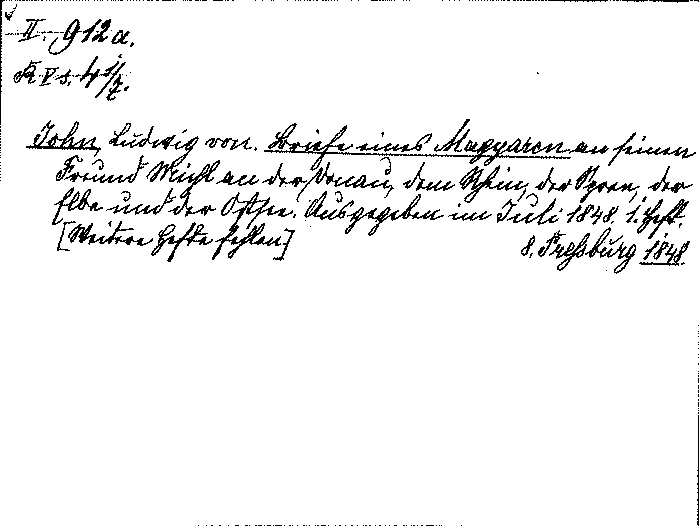 II. 912a.
John, Ludwig von. Briefe eines Magyaren an seinen
Freund Michl an der Donau, dem Rhein, der Spree, der
Elbe und der Ostsee. Ausgegeben im Juli 1848. 1. Heft.
[Weitere Hefte fehlen]
8. Preßburg 1848.